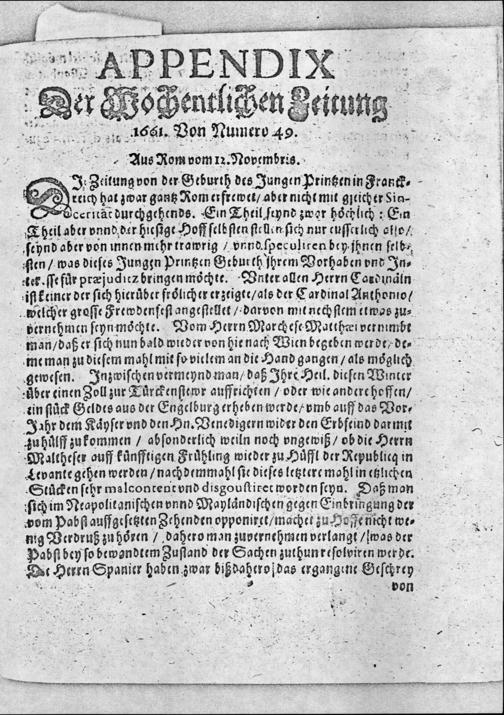 APPENDIX
Der Wochentlichen Zeitung
1661. Von Numero 49.
Aus Rom vom 12. Novembris.
Die Zeitung von der Geburth des Jungen Printzen in Franck-
reich hat zwar gantz Rom erfrewet / aber nicht mit gleicher Sin-
ceritär durchgehends. Ein Theil seynd zwar höchlich : Ein
Theil aber vnnd der hiesige Hoff selbsten stellen sich nur eusserlich also /
seynd aber von innen mehr trawrig / vnnd speculiren bey ihnen selb-
sten / was dieses Jungen Printzen Geburth ihrem Vorhaben vnd In-
ter.sse für præjuditz bringen möchte. Vnter allen Herrn Cardinäln
ist keiner der sich hierüber frölicher erzeigte / als der Cardinal Anthonio /
welcher grosse Frewdenfest angestellet / darvon mit nechstem etwas zu-
vernehmen seyn möchte. Vom Herrn Marchese Matthæi vernimbt
man / daß er sich nun bald wieder von hie nach Wien begeben werde / de-
me man zu diesem mahl mit so vielem an die Hand gangen / als möglich
gewesen. Inzwischen vermeynd man / daß Ihre Heil. diesen Winter
über einen Zoll zur Türckenstewr auffrichten / oder wie andere hoffen /
ein stück Geldes aus der Engelburg erheben werde / vmb auff das Vor-
Jahr dem Käyser vnd den Hn. Venedigern wider den Erbfeind darmit
zu hülff zukommen / absonderlich weiln noch vngewiß / ob die Herrn
Maltheser auff künfftigen Frühling wieder zu Hüffl der Republieq in
Levante gehen werden / nachdemmahl sie dieses letztere mahl in etzlichen
Stücken sehr malcontent vnd disgoustiret worden seyn. Daß man
sich im Neapolitanischen vnnd Mayländischen gegen Einbringung der
vom Pabst auffgesetzten Zehenden opponiret / machet zu Hoffe nicht we-
nig Verdruß zu hören / dahero man zuvernehmen verlangt / was der
Pabst bey so bewandtem Zustand der Sachen zuthun resolviren werde.
Die Herrn Spanier haben zwar bißdahero / das ergangene Geschrey
von